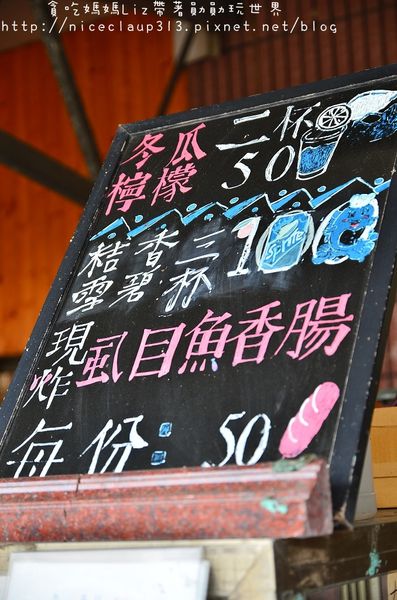 貪吃媽媽Liz帶著勛勛玩世界
http://niceclaup313.pixnet.net/blog
冬瓜檸檬 二杯50
桔香雪碧 三杯100
Sprite
現炸虱目魚香腸
每份:50